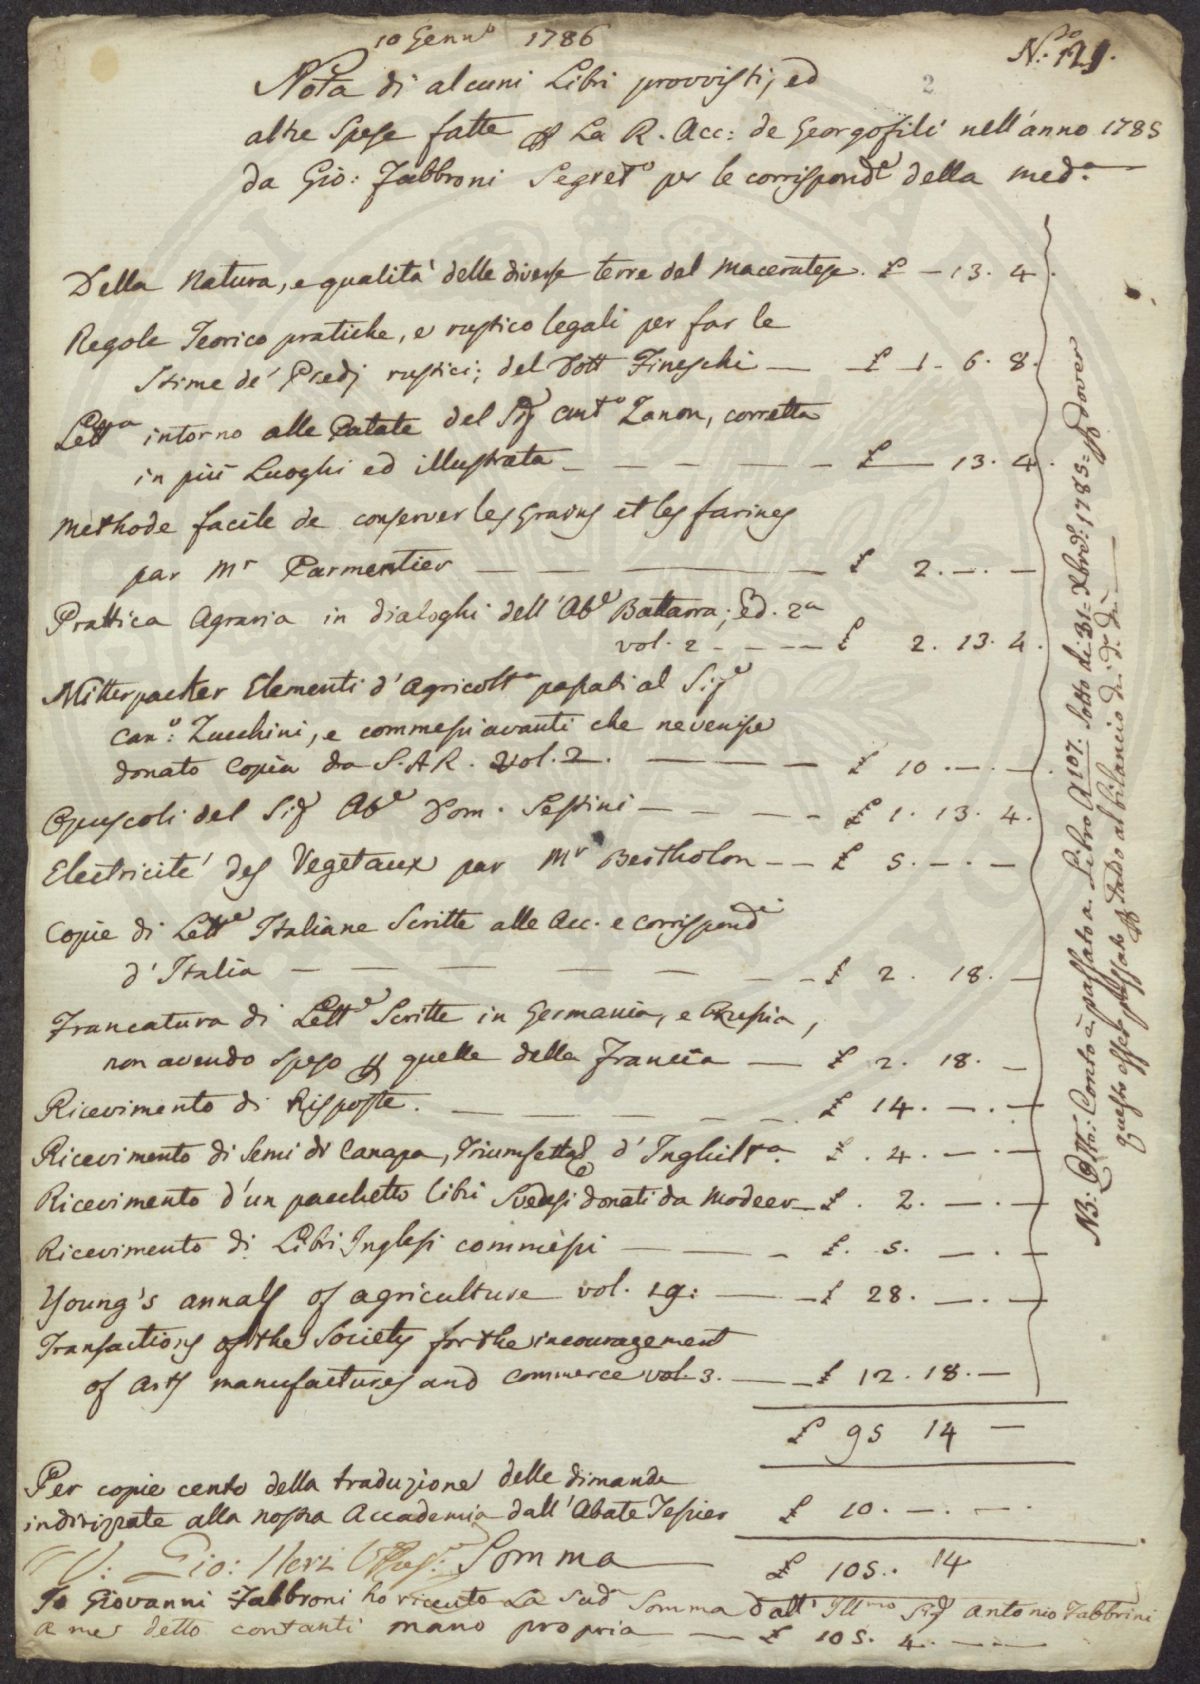 10 Genn.o 1786
N.o 121.
2
Nota di alcuni Libri provvisti, ed
altre Spese fatte p La R. Acc: de Georgofili nell'anno 1785
da Gio: Fabbroni Segret.o per le corrispond.e della med.a
Della Natura, e qualità delle diverse terre del Maceratese. £ - 13. 4.
Regole Teorico pratiche, e rustico legali per far le
Stime de' Predj rustici; del Dott Fineschi — £ 1. 6. 8.
Lett.ra intorno alle Patate del Sig.r Ant.o Zanon, corretta
in più Luoghi ed illustrata - - - - - £ — 13. 4.
Methode facile de conserver les grains et les farines
par Mr Parmentier — — — £ 2. —. —
Prattica Agraria in dialoghi dell'Ab.e Battarra; Ed. 2a
vol. 2 - - - - £ 2. 13. 4.
Mitterpacher Elementi d'Agricolt.a passati al Sig.e
Can.o: Zucchini, e commessi avanti che ne venisse
donato Copia da S.A.R. vol. 2. — — — £ 10. —. —.
Opuscoli del Sig.r Ab.e Dom. Sestini — - - - £ 1. 13. 4.
Electricité des Vegetaux par Mr Bertholon - - £ 5. —. —
Copie di Lett.e Italiane Scritte alle Acc. e corrispond.i
d'Italia — — — — — - - £ 2. 18. —
Francatura di Lett.e Scritte in Germania, e Prussia,
non avendo speso p quelle della Francia — £ 2. 18. —
Ricevimento di Risposte. — — — - - £ 14. —. —
Ricevimento di Semi di Canapa, Triumfetta &c d'Inghilt.ra £. 4. —. —
Ricevimento d'un pacchetto libri Svedesi donati da Modeer - £. 2. —. —
Ricevimento di Libri Inglesi commessi — — - £. 5. —. —
Young's annals of agriculture vol. 19: — - £ 28. —. —
Transactions of the Society for the incouragement
of Arts manufactures and Commerce vol. 3. — - £ 12. 18. —
£ 95 14 —
Per copie cento della traduzione delle dimande
indirizzate alla nostra Accademia dall'Abate Tessier £ 10. —. —.
V: Gio: Neri
Somma — £ 105. 14
Io Giovanni Fabbroni ho ricevuto La Sud.a Somma dall'Ill.mo Sig.r Antonio Fabbrini
a me detto contanti mano propria — £ 105. 4. — —
NB: Il Conto è passato a Libro A 107. Sotto di 31: Xbre: 1785: p dover
questo esser passato p Saldo al bilancio di d.o dì —